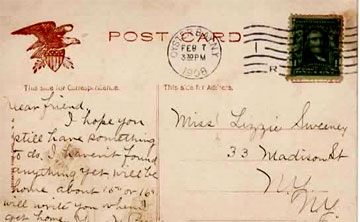 POST CARD
OYSTER BAY N.Y.
FEB 7
3 PM
1908
This side for Correspondence.
This side for Address.
Dear friend,
I hope you
still have something
to do. I haven't found
anything yet will be
home about 15th or 16th
will write you when I
get home
Miss Lizzie Sweeney
33 Madison St
N.Y.
N.Y.